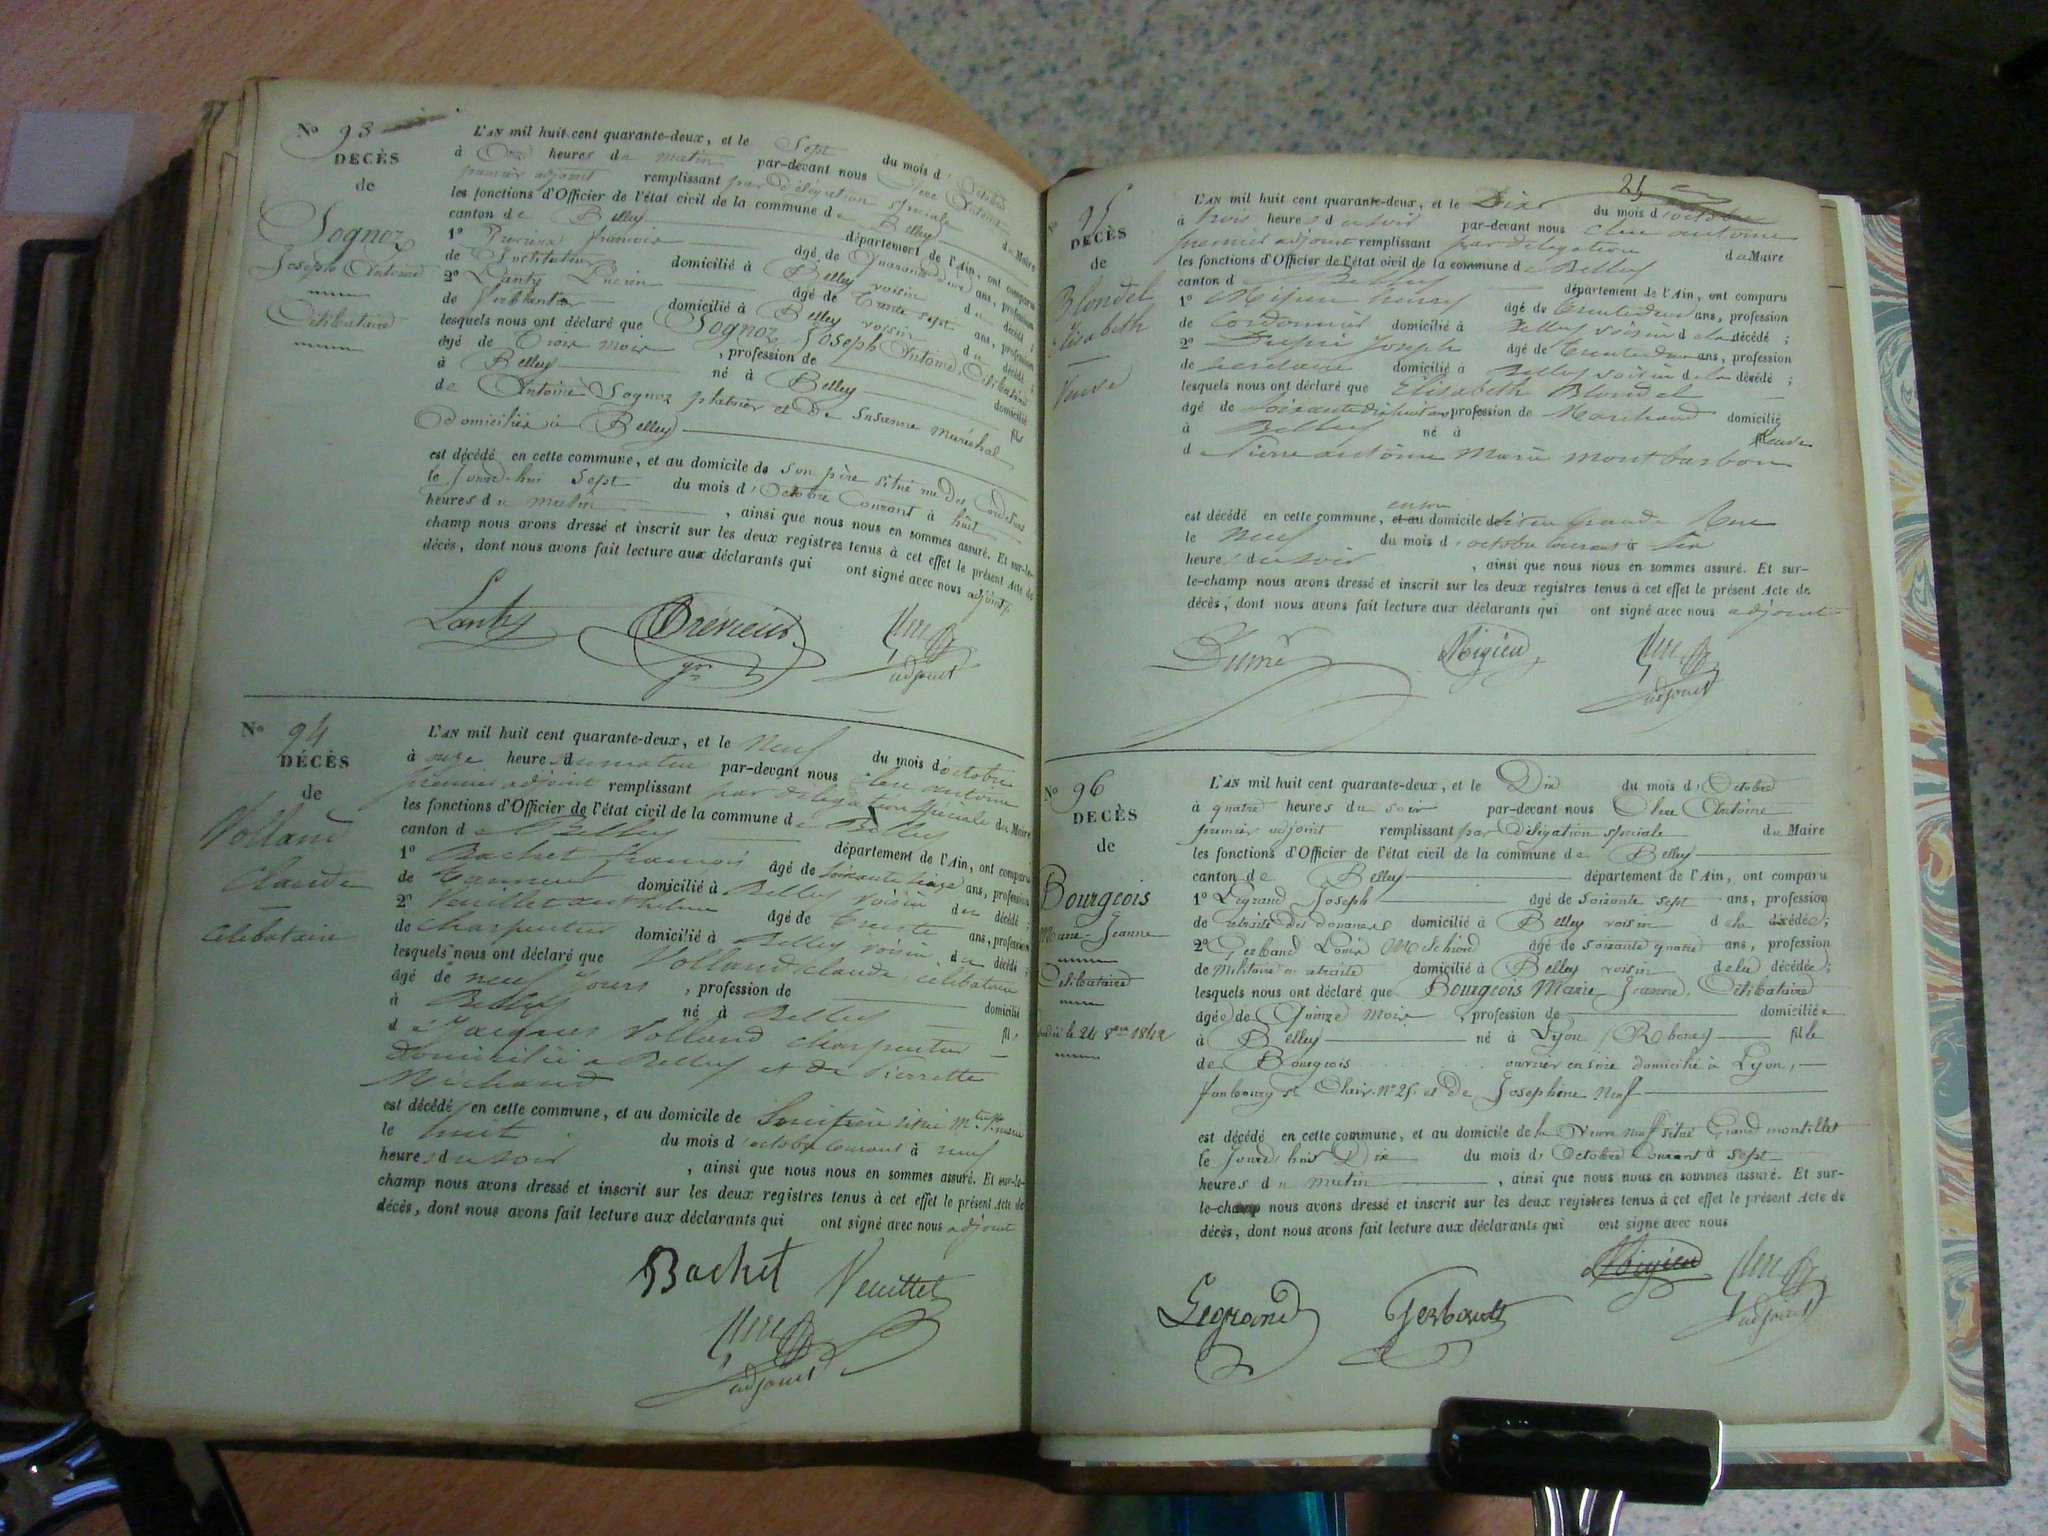 No 93
DECÈS
de
Sognoz
Joseph Antoine
Célibataire
L'AN mil huit cent quarante-deux, et le Sept du mois d'Octobre
à Onze heures du matin par-devant nous Clerc Antoine
premier adjoint remplissant par Délégation spéciale du Maire
les fonctions d'Officier de l'état civil de la commune de Belley
canton de Belley département de l'Ain, ont comparu
1o françois âgé de Quarante deux ans, profession
de Instituteur domicilié à Belley voisin du décédé ;
2o Lanty Lucien âgé de Trente sept ans, profession
de ferblantier domicilié à Belley voisin du décédé ;
lesquels nous ont déclaré que Sognoz Joseph Antoine, Célibataire
âgé de Trois mois , profession de domicilié
à Belley né à Belley fils
de Antoine Sognoz platrier et de Susanne Maréchal
domiciliés à Belley
est décédé en cette commune, et au domicile de son père situé rue des Cordeliers
le Jourd'hui Sept du mois d'Octobre Courant à huit
heures du matin , ainsi que nous nous en sommes assuré. Et sur-le-
champ nous avons dressé et inscrit sur les deux registres tenus à cet effet le présent Acte de
décès, dont nous avons fait lecture aux déclarants qui ont signé avec nous adjoint
Lanty
adjoint
No 94
DÉCÈS
de
Volland
Claude
celibataire
L'AN mil huit cent quarante-deux, et le Neuf du mois d'octobre
à onze heures du matin par-devant nous Clerc antoine
premier adjoint remplissant par délégation spéciale du Maire
les fonctions d'Officier de l'état civil de la commune de Belley
canton de Belley département de l'Ain, ont comparu
1o Bachet françois âgé de soixante seize ans, profession
de Tanneur domicilié à Belley voisin du décédé ;
2o Veuillet anthelme âgé de Trente ans, profession
de charpentier domicilié à Belley voisin du décédé ;
lesquels nous ont déclaré que Volland claude celibataire
âgé de neuf jours , profession de domicilié
à Belley né à Belley fil
de Jacques Volland charpentier
domicilié a Belley et de Pierrette
Michaud
est décédé en cette commune, et au domicile de Son père situé
le huit du mois d'octobre Courant à neuf
heures du soir , ainsi que nous nous en sommes assuré. Et sur-le-
champ nous avons dressé et inscrit sur les deux registres tenus à cet effet le présent Acte de
décès, dont nous avons fait lecture aux déclarants qui ont signé avec nous adjoint
Bachet Veuillet
adjoint
No 95
DECÈS
de
Blondel
Elisabeth
Veuve
L'AN mil huit cent quarante-deux, et le Dix du mois d'octobre
à trois heures du soir par-devant nous Clerc antoine
premier adjoint remplissant par délégation du Maire
les fonctions d'Officier de l'état civil de la commune de Belley
canton de Belley département de l'Ain, ont comparu
1o Migieu henry âgé de trente deux ans, profession
de Cordonnier domicilié à Belley voisin de la décédé ;
2o Joseph âgé de trente deux ans, profession
de domicilié à Belley voisin de la décédé ;
lesquels nous ont déclaré que Elisabeth Blondel
âgé de soixante dix huit ans profession de Marchand domicilié
à Belley né à Veuve
d Pierre antoine Marie montbarbon
est décédé en cette commune, et au domicile Grande Rue
le Neuf du mois d'octobre courant à Six
heures du soir , ainsi que nous nous en sommes assuré. Et sur-
le-champ nous avons dressé et inscrit sur les deux registres tenus à cet effet le présent Acte de
décès, dont nous avons fait lecture aux déclarants qui ont signé avec nous adjoint
Migieu
adjoint
No 96
DECÈS
de
Bourgeois
Marie-Jeanne
Célibataire
le 24 8bre 1842
L'AN mil huit cent quarante-deux, et le Dix du mois d'Octobre
à quatre heures du soir par-devant nous Clerc Antoine
premier adjoint remplissant par Délégation spéciale du Maire
les fonctions d'Officier de l'état civil de la commune de Belley
canton de Belley département de l'Ain, ont comparu
1o Legrand Joseph âgé de soixante sept ans, profession
de retraité des douanes domicilié à Belley voisin de la décédée ;
2o Louis Melchior âgé de soixante quatre ans, profession
de Militaire en retraite domicilié à Belley voisin de la décédée ;
lesquels nous ont déclaré que Bourgeois Marie Jeanne, Célibataire
âgée de Quinze mois , profession de domiciliée
à Belley né à Lyon (Rhone) fille
de Bourgeois ouvrier en soie domicilié à Lyon,
faubourg St Clair, No 25. et de Josephine Neuf
est décédé en cette commune, et au domicile de la Veuve neuf situé Grand montillet
le Jourd'hui Dix du mois d'Octobre Courant à sept
heures du matin , ainsi que nous nous en sommes assuré. Et sur-
le-champ nous avons dressé et inscrit sur les deux registres tenus à cet effet le présent Acte de
décès, dont nous avons fait lecture aux déclarants qui ont signé avec nous
Migieu
Legrand Gerbault
adjoint